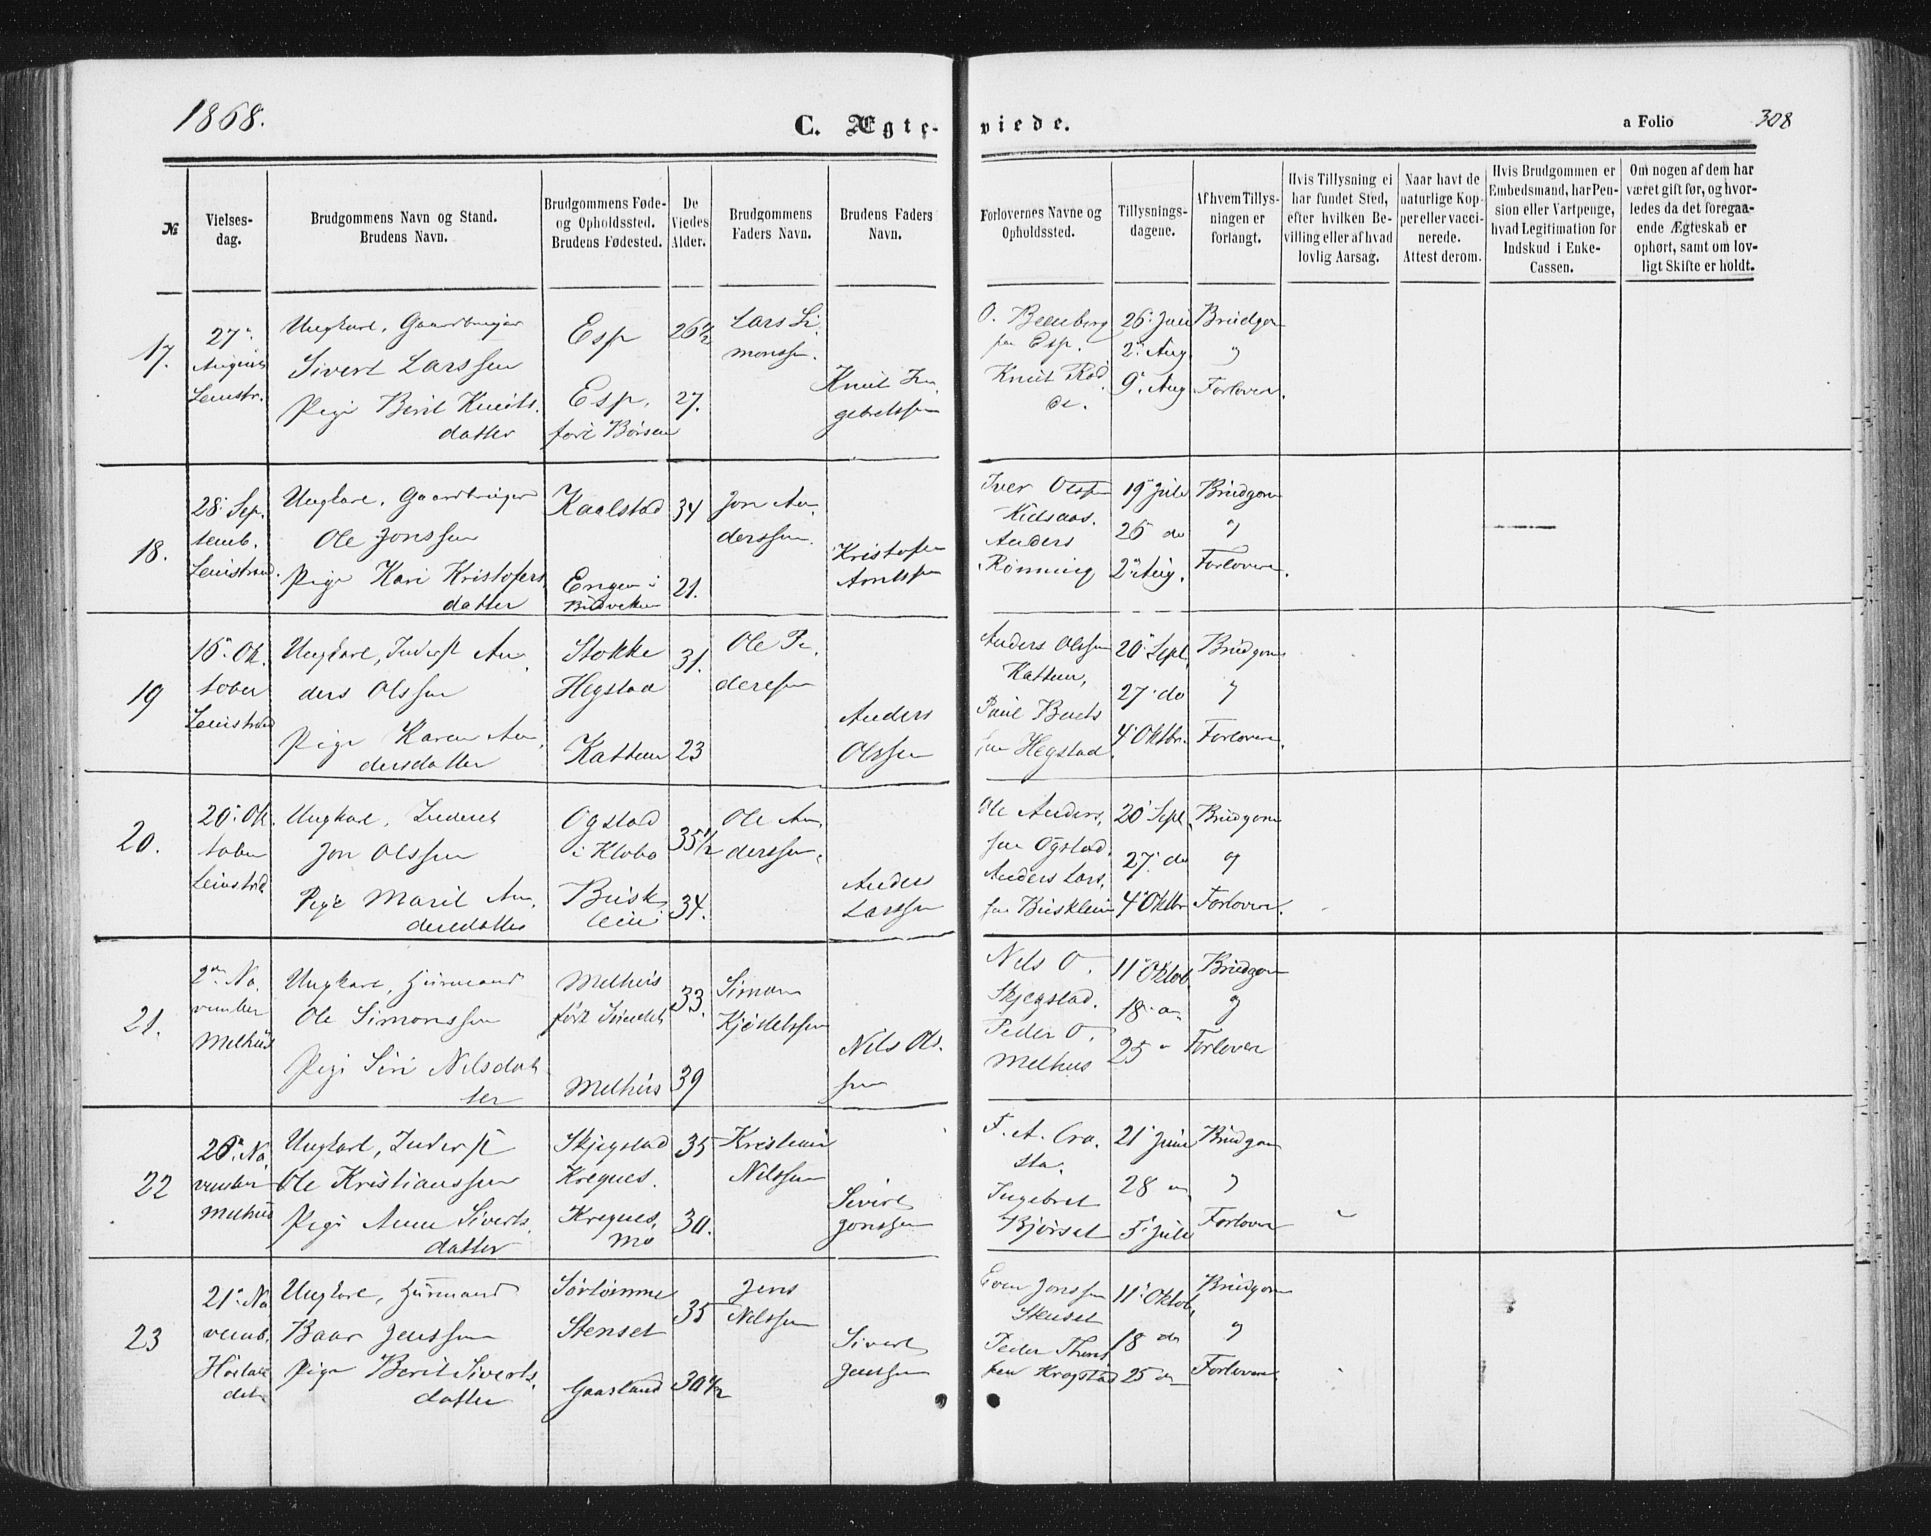 1868.
C. Ægte- viede.
a Folio 308
№
Vielses-
dag.
Brudgommens Navn og Stand.
Brudens Navn.
Brudgommens Føde-
og Opholdssted.
Brudens Fødested.
De
Viedes
Alder.
Brudgommens
Faders Navn.
Brudens Faders
Navn.
Forlovernes Navne og
Opholdssted.
Tillysnings-
dagene.
Af hvem Tillys-
ningen er
forlangt.
Hvis Tillysning ei
har fundet Sted,
efter hvilken Be-
villing eller af hvad
lovlig Aarsag.
Naar havt de
naturlige Kop-
per eller vacci-
nerede.
Attest derom.
Hvis Brudgommen er
Embedsmand, har Pen-
sion eller Vartpenge,
hvad Legitimation for
Indskud i Enke-
Cassen.
Om nogen af dem har
været gift før, og hvor-
ledes da det foregaa-
ende Ægteskab er
ophørt, samt om lov-
ligt Skifte er holdt.
17.
27
August
Leinstr.
Ungkarl, Gaardbruger
Sivert Larssen
Pige Berit Knuts.
datter
Esp
Esp,
født Børsen
26½
27.
Lars Si.
monssen.
Knut In
gebretssen
O. Benberg
Esp.
Knut Rød
de.
26 Juli
2 Aug.
9 Aug
Brudgom
og
Forlover.
18.
28 Sep.
temb.
Leinstrand.
Ungkarl, Gaardbruger
Ole Jonssen
Pige Kari Kristofers
datter
Kaalstad
Engen i
Budviken
34
21.
Jon An.
derssen.
Kristofer
Arntssen
Iver Olssen
Kulsaas.
Anders
Rønning
19 Juli
26 do
2 Aug.
Brudgom
og
Forlovere.
19
16 Ok.
tober
Leinstrand
Ungkarl, Inderst An
ders Olssen
Pige Karen An.
dersdatter
Stokke
Hegstad
Kattem
31.
23
Ole Pe.
derssen
Anders
Olssen
Anders Olssen
Kattem,
Paul Bents
sen Hegstad
20 Sept.
27 do
4 Oktbr.
Brudgom
og
Forlovere.
20.
20 Ok.
tober
Leinstrd
Ungkarl, Inderst
Jon Olssen
Pige Marit An.
dersdatter
Ogstad
i Klæbo
Busk
lein
35½
34.
Ole An.
derssen.
Anders
Larssen
Ole Anders.
sen Ogstad.
Anders Lars.
sen Busklein
20 Sept.
27 do
4 Oktbr
Brudgom
og
Forlovere.
21.
2 No.
vember
Melhus
Ungkarl, Husmand
Ole Simonssen
Pige Siri Nilsdat
ter
Melhus
født Sundet
Melhus
33.
39
Simon
Kjøstelssen
Nils Ols.
sen
Nels O.
Skjegstad.
Peder O.
Melhus
11 Oktob.
18
25
Brudgom
og
Forlover
22
26 No.
vember
Melhus
Ungkarl, Inderst
Ole Kristianssen
Pige Anne Siverts.
datter
Skjegstad
Kregnes.
Kregnes,
mo
35
30.
Kristian
Nilssen
Sivert
Jonssen
F. A. Cra.
sta.
Ingebret
Bjørset
21 Juni
28
5 Juli
Brudgom
Forlover
23
21 No
vemb.
Ungkarl, Husmand
Baar Jenssen
Pige Berit Siverts.
datter
Sørtømme
Stenset
Gaasland
35
30½
Jens
Nelssen
Sivert
Jenssen
Even Jonssen
Stenset
Peder Thors
sen Krogstad
11 Oktob.
18 do
25
Brudgom
og
Forlovere